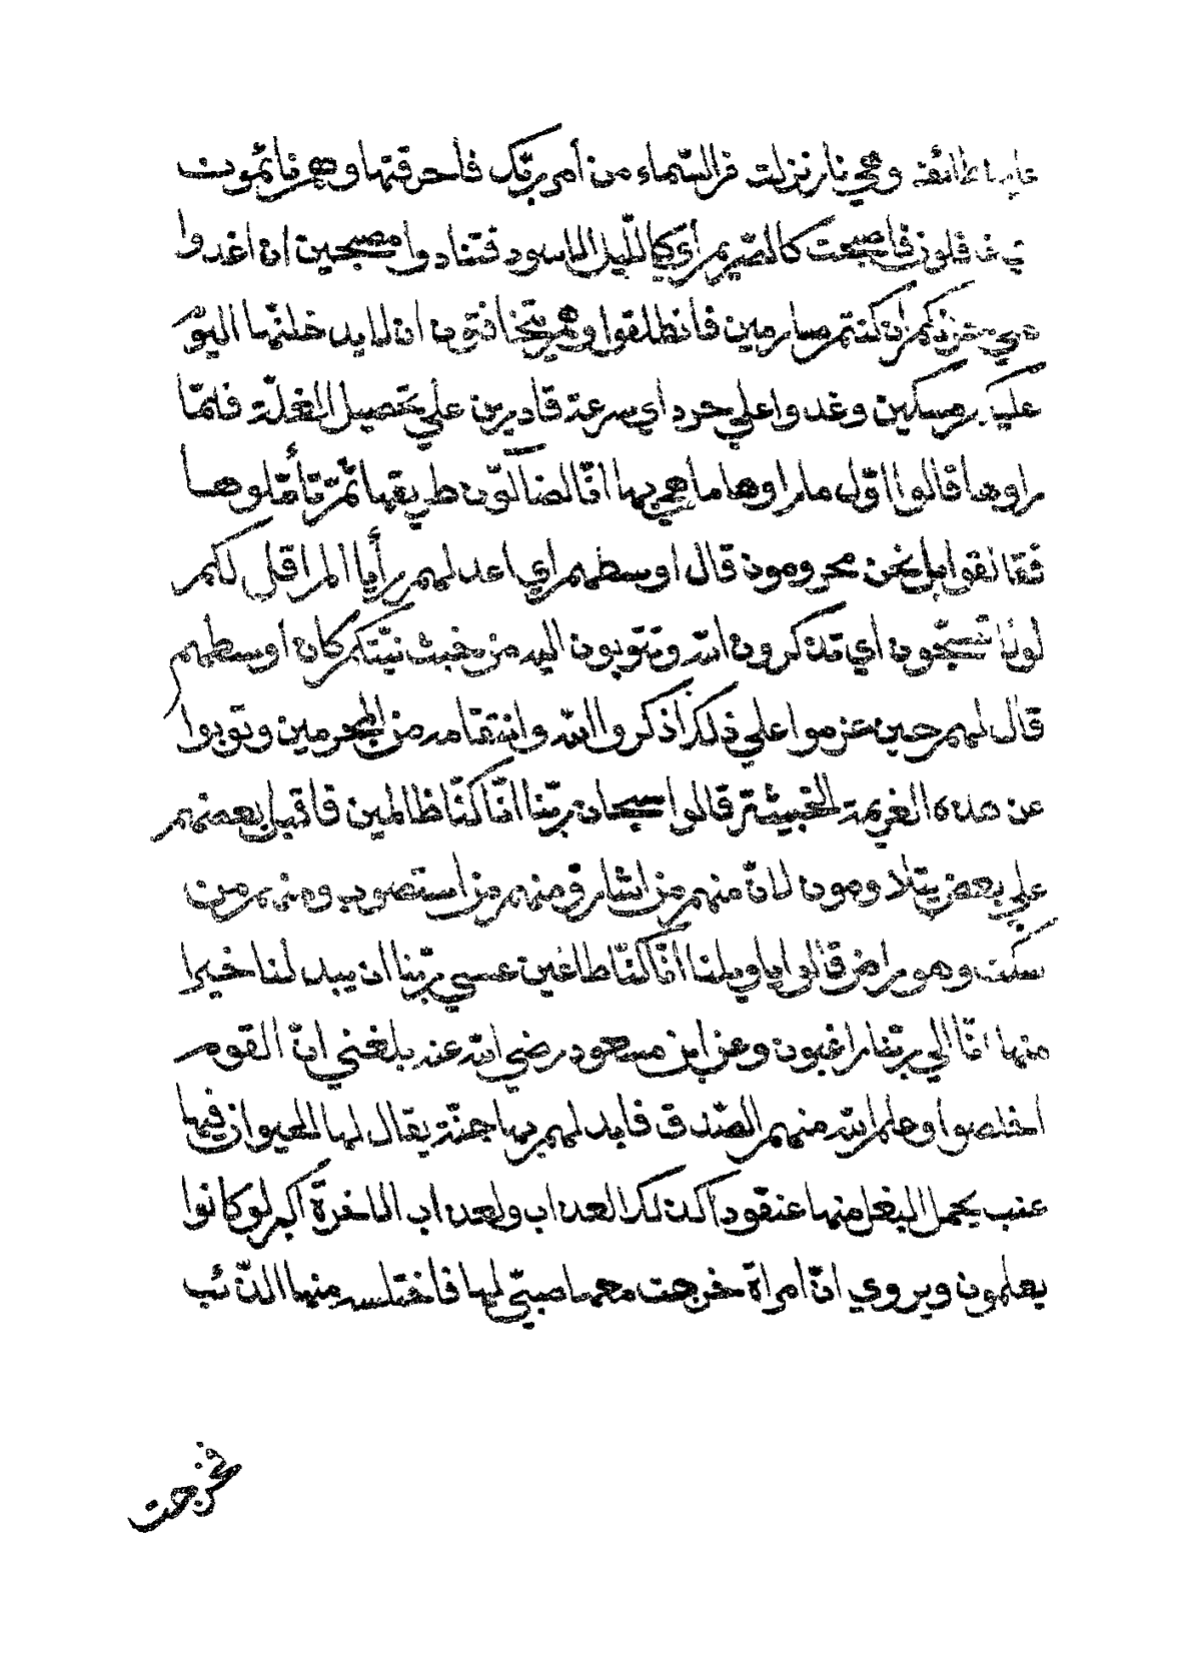 عليها طائف وهي نار نزلت من السّماء من أمر ربّك فأحرقتها وهم نائمون
غافلون فأصبحت كالصّريم أي كاللّيل الاسود فتنادوا مصبحين ان اغدوا
علي حرثكم ان كنتم صارمين فانطلقوا وهم يتخافتون ان لا يدخلنّها اليوم
عليكم مسكين وغدوا علي حرد أي سرعة قادرين علي تحصيل الغلّة فلمّا
راوها قالوا اوّل ما راوها ما هي بها انّا لضالّون طريقها ثمّ تأمّلوها
فقالوا بل نحن محرومون قال اوسطهم اي اعدلهم رأيا الم اقل لكم
لولا تسبّحون أي تذكرون الله وتتوبون اليه من خبث نيّتكم كان اوسطهم
قال لهم حين عزموا علي ذلك أذكروا الله وانتقامه من المجرمين وتوبوا
عن هذه العزيمة الخبيثة قالوا سبحان ربّنا انّا كنّا ظالمين فاقبل بعضهم
علي بعض يتلاومون لانّ منهم من اشار ومنهم من استصوب ومنهم من
سكت وهو راض قالوا يا ويلنا انّا كنّا طاغين عسي ربّنا ان يبدلنا خيرا
منها انّا الي ربّنا راغبون وعن ابن مسعود رضي الله عنه بلغني انّ القوم
اخلصوا وعلم الله منهم الصّدق فابدلهم بها جنّة يقال لها الحيوان فيها
عنب يحمل البغل منها عنقودا كذلك العذاب ولعذاب الاخرة اكبر لو كانوا
يعلمون ويروي انّ امراة خرجت معها صبيّ لها فاختلسه منها الذّئب
فخرجت